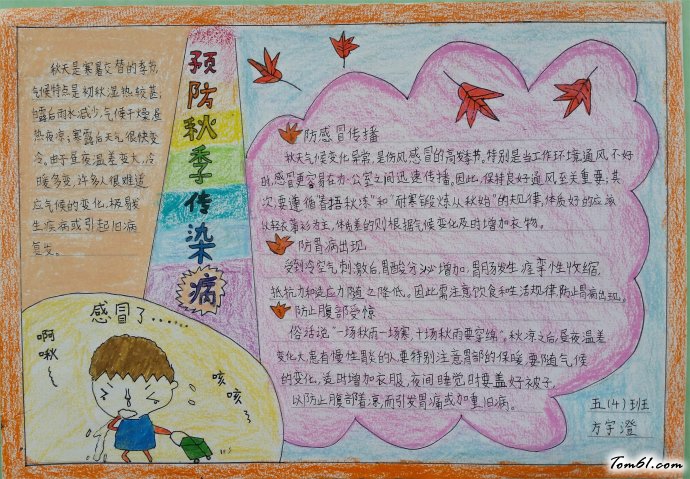 秋天是寒暑交替的季节,
气候特点是初秋湿热较甚,
白露后雨水减少,气候干燥,昼
热夜凉;寒露后天气很快变
冷。由于昼夜温差变大,冷
暖多变,许多人很难适
应气候的变化,极易
生疾病或引起旧病
复发。
预防秋季传染病
防感冒传播
秋天气候变化异常,是伤风感冒的高发季节。特别是当工作环境通风不好
时,感冒更容易在办公室之间迅速传播。因此,保持良好通风至关重要;其
次,要遵循"春捂秋冻"和"耐寒锻炼从秋始"的规律,体质好的应
以轻衣薄衫为主,体质差的则根据气候变化及时增加衣物。
防胃病出现
受到冷空气刺激后,胃酸分泌增加,胃肠发生痉挛性收缩,
抵抗力和适应力随之降低。因此需注意饮食和生活规律,防止胃病出现。
防止腹部受惊
俗话说"一场秋雨一场寒,十场秋雨要穿绵"。秋凉之后,昼夜温差
变化大,患有慢性胃炎的人要特别注意胃部的保暖,要随气候
的变化,适时增加衣服,夜间睡觉时要盖好被子,
以防止腹部着凉而引发胃痛或加重旧病。
五(4)班
方宇澄
感冒了......
啊啾~
咳咳~
Tom61.com